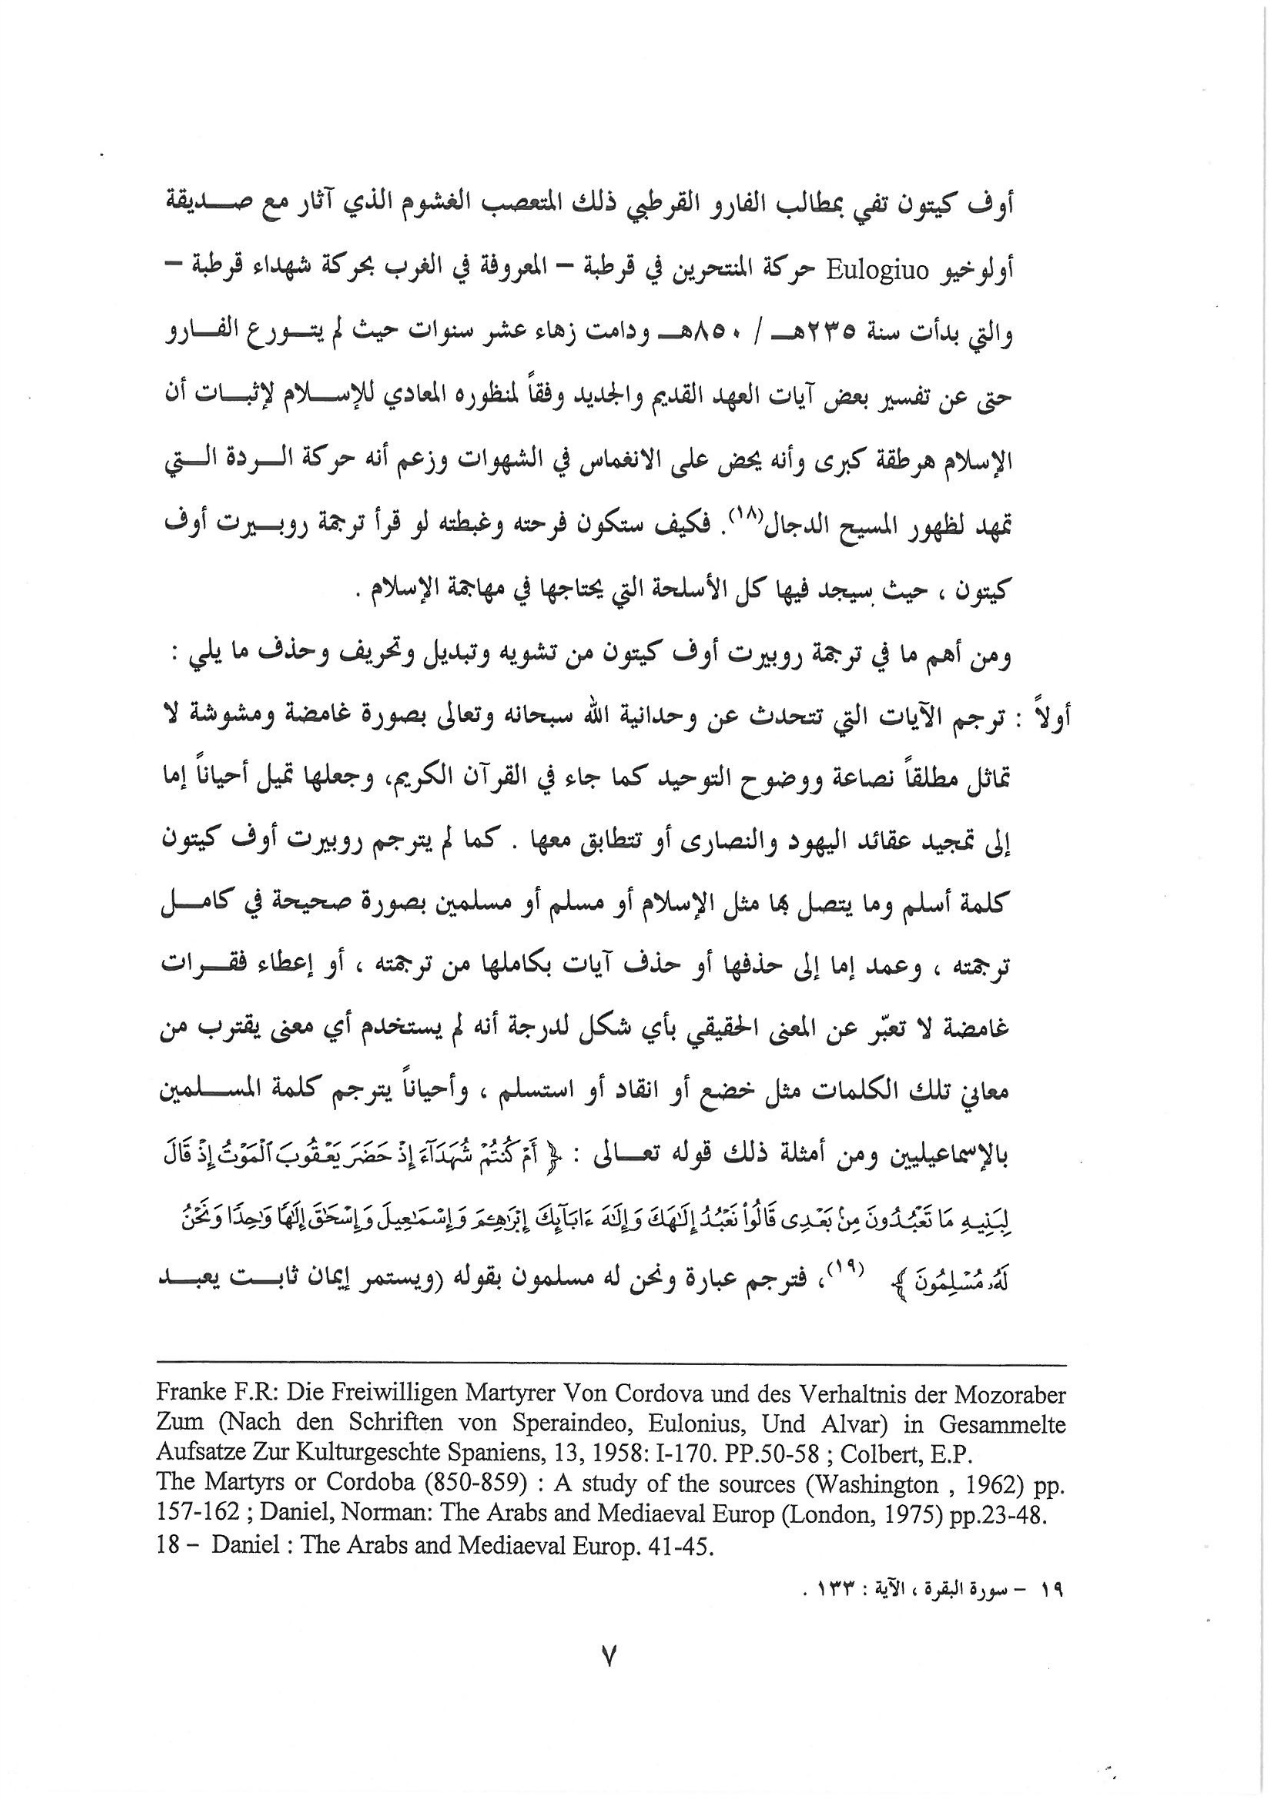 أوف كيتون تفي بمطالب الفارو القرطبي ذلك المتعصب الغشوم الذي آثار مع صديقة
أولوخيو Eulogiuo حركة المنتحرين في قرطبة – المعروفة في الغرب بحركة شهداء قرطبة –
والتي بدأت سنة ٢٣٥هـ / ٨٥٠هـ ودامت زهاء عشر سنوات حيث لم يتورع الفارو
حتى عن تفسير بعض آيات العهد القديم والجديد وفقاً لمنظوره المعادي للإسلام لإثبات أن
الإسلام هرطقة كبرى وأنه يحض على الانغماس في الشهوات وزعم أنه حركة الردة التي
تمهد لظهور المسيح الدجال(١٨). فكيف ستكون فرحته وغبطته لو قرأ ترجمة روبيرت أوف
كيتون ، حيث سيجد فيها كل الأسلحة التي يحتاجها في مهاجمة الإسلام .
ومن أهم ما في ترجمة روبيرت أوف كيتون من تشويه وتبديل وتحريف وحذف ما يلي :
أولاً : ترجم الآيات التي تتحدث عن وحدانية الله سبحانه وتعالى بصورة غامضة ومشوشة لا
تماثل مطلقاً نصاعة ووضوح التوحيد كما جاء في القرآن الكريم، وجعلها تميل أحياناً إما
إلى تمجيد عقائد اليهود والنصارى أو تتطابق معها . كما لم يترجم روبيرت أوف كيتون
كلمة أسلم وما يتصل بها مثل الإسلام أو مسلم أو مسلمين بصورة صحيحة في كامل
ترجمته ، وعمد إما إلى حذفها أو حذف آيات بكاملها من ترجمته ، أو إعطاء فقرات
غامضة لا تعبّر عن المعنى الحقيقي بأي شكل لدرجة أنه لم يستخدم أي معنى يقترب من
معاني تلك الكلمات مثل خضع أو انقاد أو استسلم ، وأحياناً يترجم كلمة المسلمين
بالإسماعيليين ومن أمثلة ذلك قوله تعالى : ﴿ أَمْ كُنتُمْ شُهَدَآءَ إِذْ حَضَرَ يَعْقُوبَ ٱلْمَوْتُ إِذْ قَالَ
لِبَنِيهِ مَا تَعْبُدُونَ مِنۢ بَعْدِى قَالُوا۟ نَعْبُدُ إِلَٰهَكَ وَإِلَٰهَ ءَابَآئِكَ إِبْرَٰهِـۧمَ وَإِسْمَٰعِيلَ وَإِسْحَٰقَ إِلَٰهًا وَٰحِدًا وَنَحْنُ
لَهُۥ مُسْلِمُونَ ﴾ (١٩)، فترجم عبارة ونحن له مسلمون بقوله (ويستمر إيمان ثابت يعبد
Franke F.R: Die Freiwilligen Martyrer Von Cordova und des Verhaltnis der Mozoraber
Zum (Nach den Schriften von Speraindeo, Eulonius, Und Alvar) in Gesammelte
Aufsatze Zur Kulturgeschte Spaniens, 13, 1958: I-170. PP.50-58 ; Colbert, E.P.
The Martyrs or Cordoba (850-859) : A study of the sources (Washington , 1962) pp.
157-162 ; Daniel, Norman: The Arabs and Mediaeval Europ (London, 1975) pp.23-48.
18 – Daniel : The Arabs and Mediaeval Europ. 41-45.
١٩ – سورة البقرة ، الآية : ١٣٣ .
٧